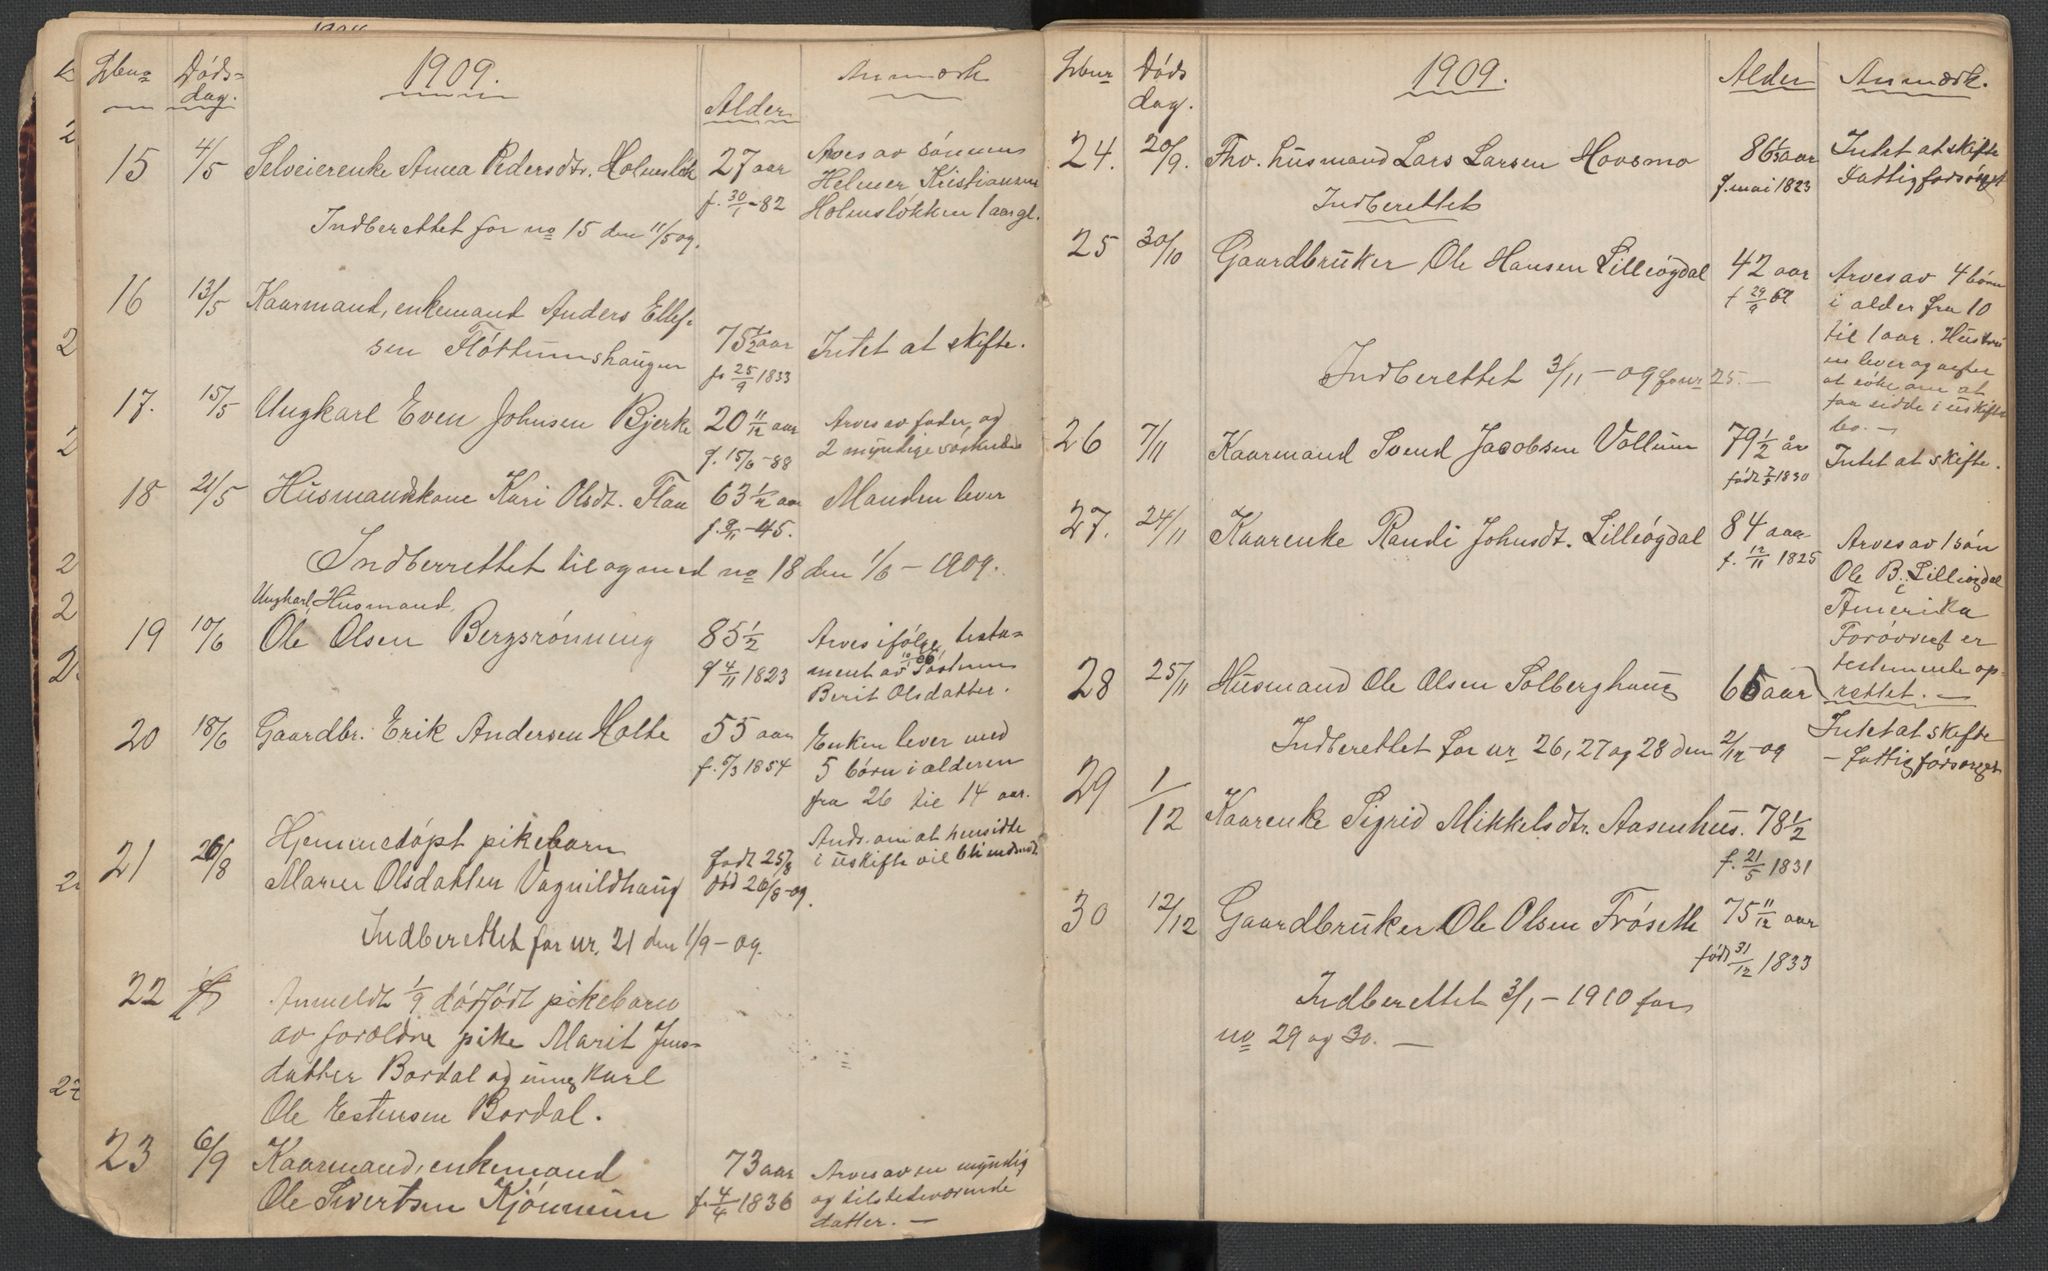 Lbno Døds- 1909. Alder Anmærk
dag.
15 4/5 Selveierenke Anna Pedersdtr. Holmsløk 27 aar Arves av sønnen
f. 30/1-82 Helmer Kristiansen
Holmsløkken 1 aar gl.
Indberettet for no 15 den 11/5 09.
16 13/5 Kaarmand, enkemand Anders Ellef-
sen Fløttumshaugen 75 1/2 aar Intet at skifte.
f. 25/9 1833
17. 15/5 Ungkarl Even Johnsen Bjerke 20 11/12 aar Arves av fader og
f. 15/6-88 2 myndige søskende
18 21/5 Husmandskone Kari Olsdt. Flaa 63 1/2 aar Manden lever
f. 9/11-45.
Indberrettet til og med no 18 den 1/6-1909.
Ungkarl, Husmand,
19 10/6 Ole Olsen Bergsrønning 85 1/2 Arves ifølge testa-
f 4/11 1823 ment av 10/1 06 Søsteren
Berit Olsdatter.
20 18/6 Gaardbr. Erik Andersen Holte 55 aar Enken lever med
f. 5/3 1854 5 børn i alderen
fra 26 til 14 aar.
Ands. om at hensidte
i uskifte vil bli indsendt.
21 26/8 Hjemmedøpt pikebarn født 25/8
Maren Olsdatter Vagnildhaug død 26/8-09.
Indberettet for nr. 21 den 1/9-09.
22 Anmeldt 1/9 dødfødt pikebarn
av forældre pike Marit Jens-
datter Bordal og ungkarl
Ole Estensen Bordal.
23 6/9 Kaarmand, enkemand 73 aar Arves av en myndig
Ole Sivertsen Kjønnum f. 4/4 1836 og tilstedeværende
datter. —
Lbnr Døds 1909. Alder Anmærk.
dag.
24. 20/9. Fhv. husmand Lars Larsen Hovsmo 86 1/3 aar Intet at skifte
f. mai 1823 Fattigforsørget
Indberettet
25 30/10 Gaardbruker Ole Hansen Lilleøgdal 42 aar Arves av 4 børn
f 29/9 67 i alder fra 10
til 1 aar. Hustru
en lever og agter
at søke om at
faa sidde i uskiftet
bo. —
Indberettet 3/11-09 for nr 25. —
26 7/11 Kaarmand Svend Jacobsen Vollum 79 1/2 år Intet at skifte.
født 7/5 1830
27. 24/11 Kaarenke Randi Johnsdt. Lilleøgdal 84 aar Arves av 1 søn
f. 12/11 1825 Ole B. Lilleøgdal
i
Amerika
Forøvrigt er
testemente op-
rettet. —
28 25/11 Husmand Ole Olsen Solberghaug 65 aar Intet at skifte
— fattigforsørget
Indberettet for nr 26, 27 og 28 den 2/12-09
29 1/12 Kaarenke Sigrid Mikkelsdtr. Aasenhus. 78 1/2
f. 21/5 1831
30 12/12 Gaardbruker Ole Olsen Frøseth 75 11/12 aar
født 31/12 1833
Indberettet 3/1-1910 for
no 29 og 30. —